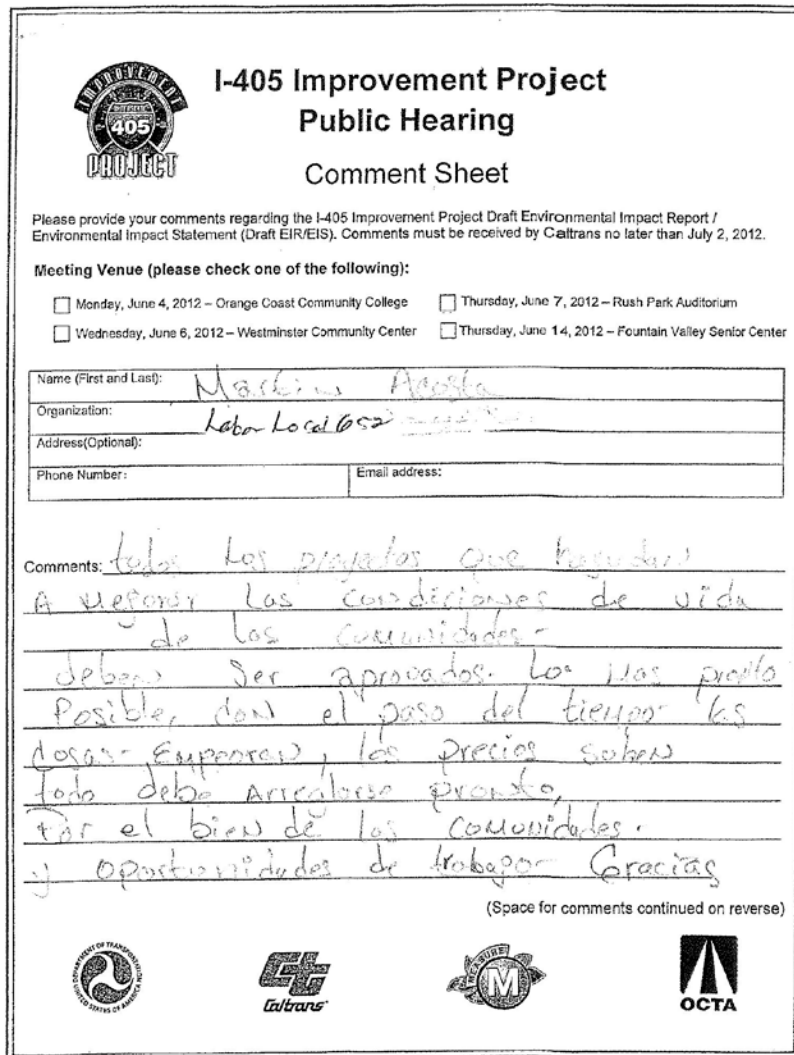 IMPROVEMENT
405
PROJECT
I-405 Improvement Project
Public Hearing
Comment Sheet
Please provide your comments regarding the I-405 Improvement Project Draft Environmental Impact Report /
Environmental Impact Statement (Draft EIR/EIS). Comments must be received by Caltrans no later than July 2, 2012.
Meeting Venue (please check one of the following):
Monday, June 4, 2012 – Orange Coast Community College
Thursday, June 7, 2012 – Rush Park Auditorium
Wednesday, June 6, 2012 – Westminster Community Center
Thursday, June 14, 2012 – Fountain Valley Senior Center
Name (First and Last): Acosta
Organization: Labor Local 652
Address(Optional):
Phone Number:
Email address:
Comments: todos Los proyectos que hayudan
A Mejorar Las condiciones de vida
de las comunidades-
deben Ser aprovados. Los Mas pronto
Posible, con el paso del tiempo- las
cosas- Empeoran, los precios suben
todo debe Arreglarse pronto,
Por el bien de las comunidades.
y oportunidades de trabajo- Gracias
(Space for comments continued on reverse)
DEPARTMENT OF TRANSPORTATION
UNITED STATES OF AMERICA
Caltrans
MEASURE
M
OCTA